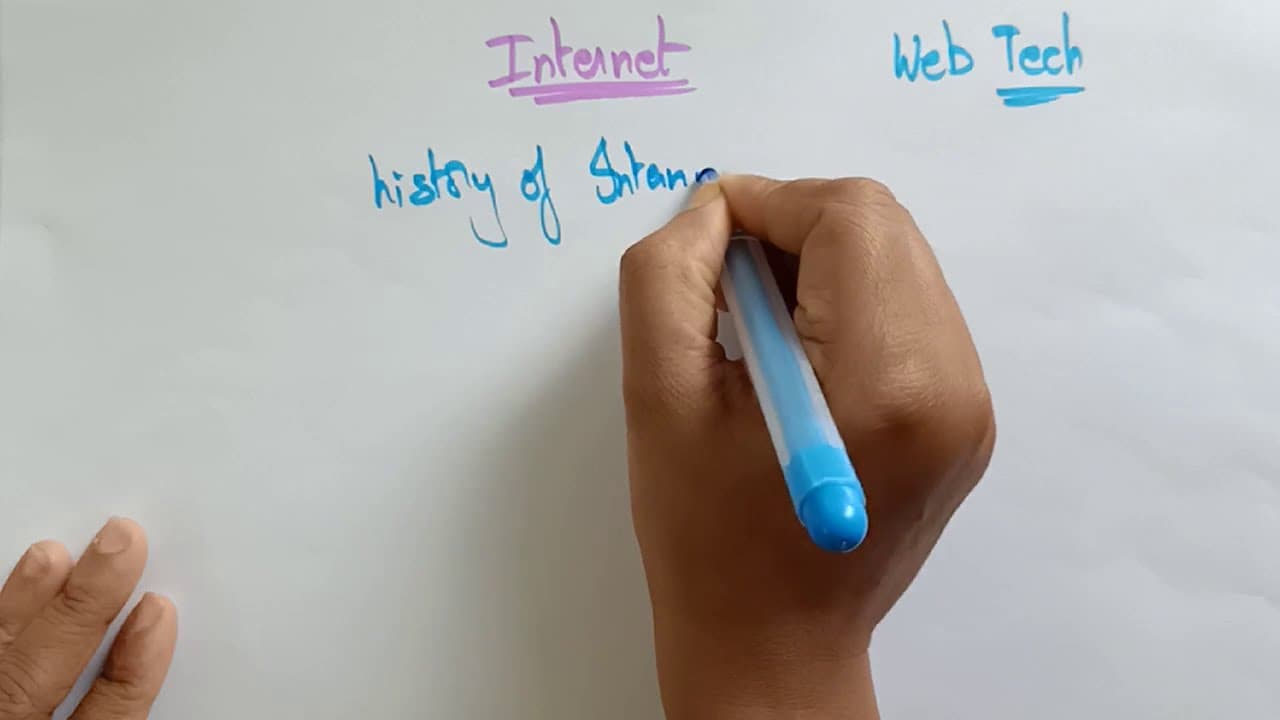 Internet
Web Tech
history of Intern